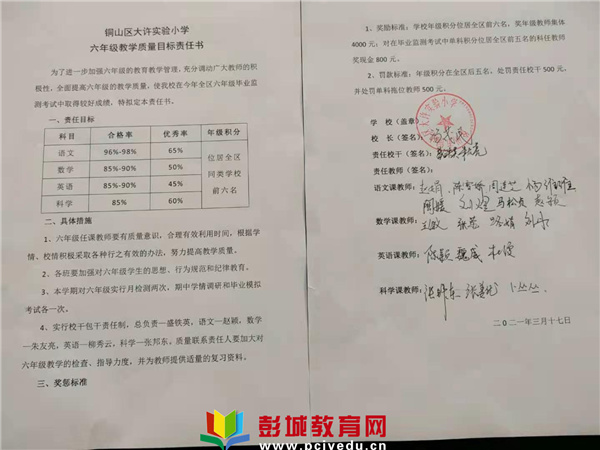 铜山区大许实验小学
六年级教学质量目标责任书
为了进一步加强六年级的教育教学管理，充分调动广大教师的积
极性，全面提高六年级的教学质量，使我校在今年全区六年级毕业监
测考试中取得较好成绩，特拟定本责任书。
一、责任目标
科目 合格率 优秀率 年级积分
语文 96%-98% 65%
数学 85%-90% 50%
英语 85%-90% 45%
科学 85% 60%
位居全区
同类学校
前六名
二、具体措施
1、六年级任课教师要有质量意识，合理有效利用时间，根据学
情、校情积极采取各种行之有效的办法，努力提高教学质量。
2、各班要加强对六年级学生的思想、行为规范和纪律教育。
3、本学期对六年级实行月检测两次，期中学情调研和毕业模拟
考试各一次。
4、实行校干包干责任制，总负责—盛铁英，语文—赵颖，数学
—朱友亮，英语—柳秀云，科学—张邦东。质量联系责任人要加大对
六年级教学的检查、指导力度，并为教师提供适量的复习资料。
三、奖惩标准
1、奖励标准：学校年级积分位居全区前六名，奖年级教师集体
4000元；对在毕业监测考试中单科积分位居全区前五名的科任教师
奖现金800元。
2、罚款标准：年级积分在全区后五名，处罚责任校干500元，
并处罚单科拖位教师500元。
学 校（盖章）
校 长（签名）：
责任校干（签名）：
责任教师（签名）：
语文课教师：
数学课教师：
英语课教师：
科学课教师：
二〇二一年三月十七日
彭城教育网
www.pcjyedu.com